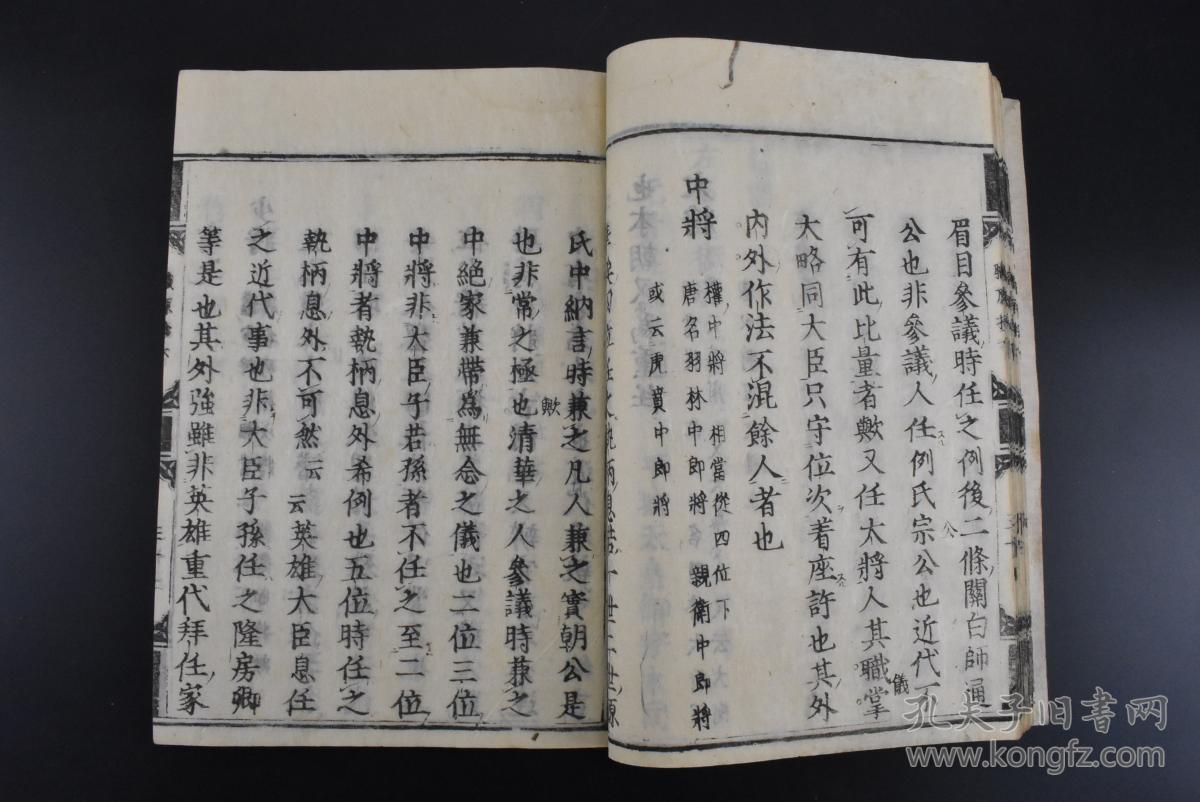 眉目參議時任之例後二條關白師通
公也非參議人任例氏宗公也近代
可有此比量者歟又任大將人其職掌
儀
大略同大臣只守位次着座許也其外
内外作法不混餘人者也
中將
權中將 相當從四位下
唐名羽林中郎將 親衛中郎將
或云虎賁中郎將
氏中納言時兼之凡人兼之實朝公是
歟
也非常之極也清華之人參議時兼之
中絶家兼帶為無念之儀也二位三位
中將非大臣子若孫者不任之至二位
中將者執柄息外希例也五位時任之
執柄息外不可然云云英雄大臣息任
之近代事也非大臣子孫任之隆房卿
等是也其外強雖非英雄重代拜任家
孔夫子旧书网
www.kongfz.com